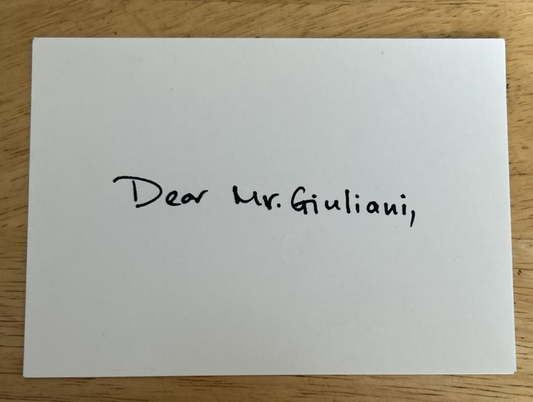 Dear Mr. Giuliani,